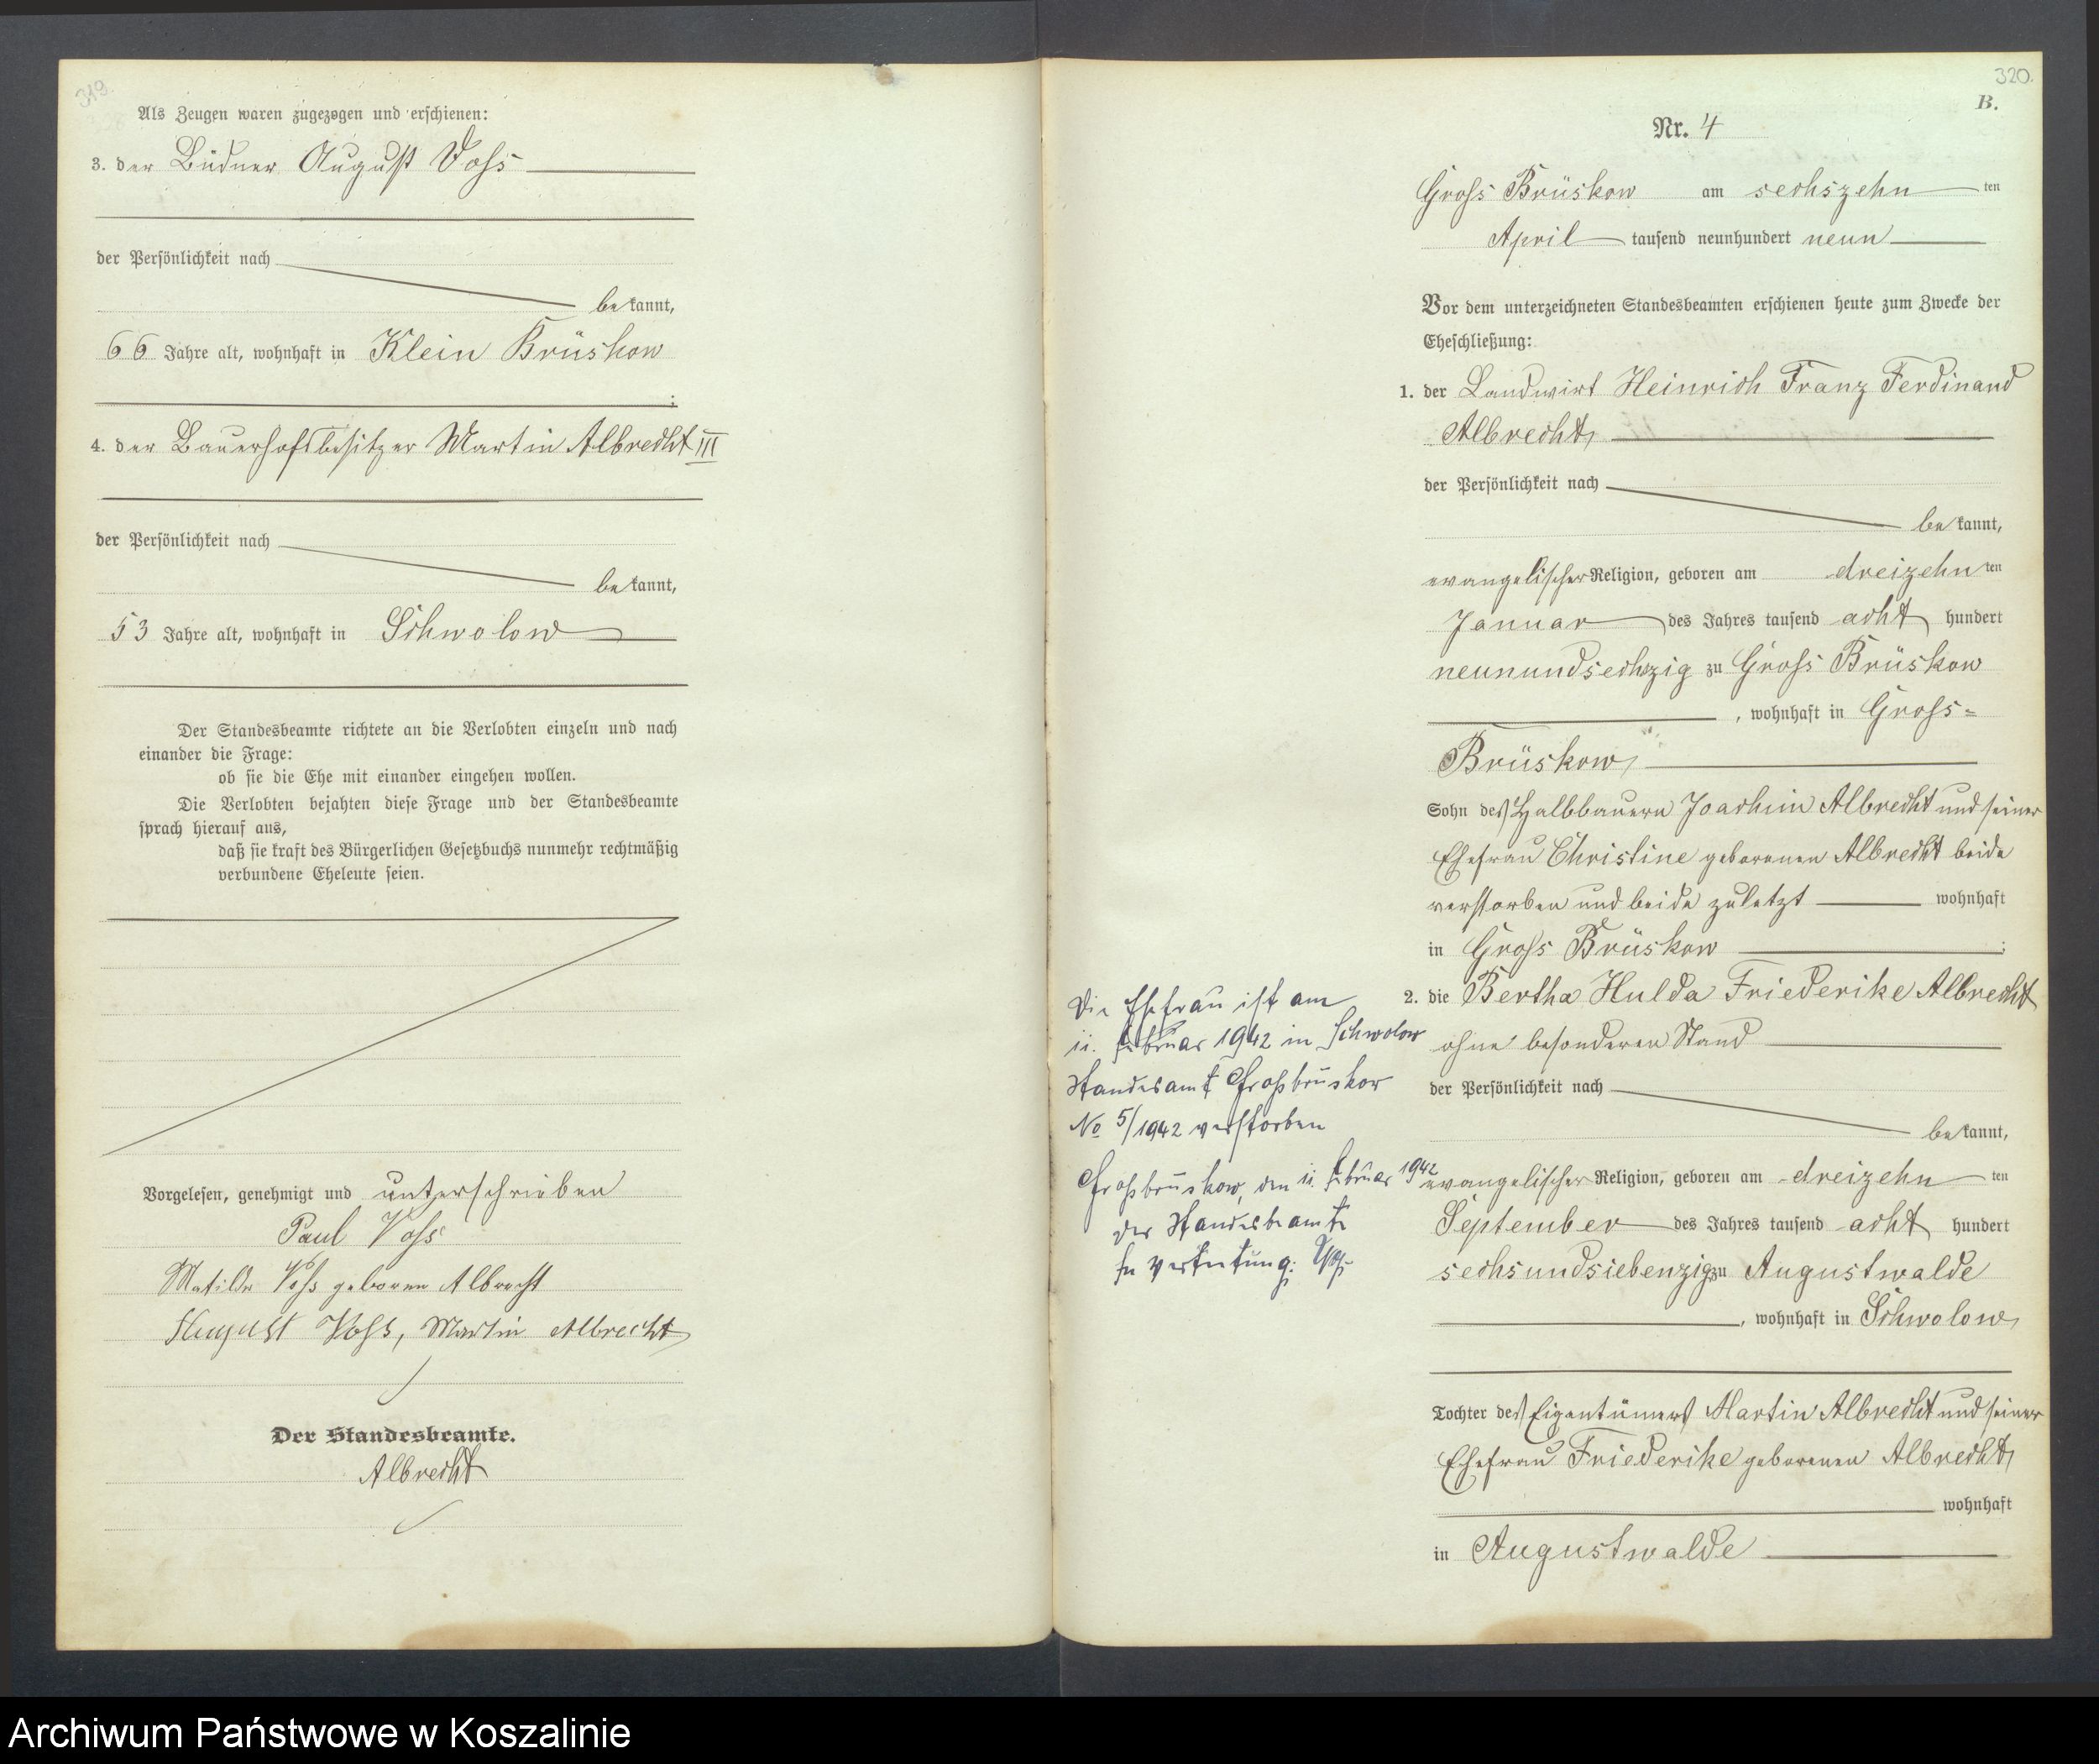 319.
Als Zeugen waren zugezogen und erschienen:
3. der Büdner August Voß
der Persönlichkeit nach
bekannt,
66 Jahre alt, wohnhaft in Klein Brüskow
;
4. der Bauerhofsbesitzer Martin Albrecht III
der Persönlichkeit nach
bekannt,
53 Jahre alt, wohnhaft in Schwolow
Der Standesbeamte richtete an die Verlobten einzeln und nach
einander die Frage:
ob sie die Ehe mit einander eingehen wollen.
Die Verlobten bejahten diese Frage und der Standesbeamte
sprach hierauf aus,
daß sie kraft des Bürgerlichen Gesetzbuchs nunmehr rechtmäßig
verbundene Eheleute seien.
Vorgelesen, genehmigt und unterschrieben
Paul Voß
Matilde Voß geboren Albrecht
August Voß, Martin Albrecht
Der Standesbeamte.
Albrecht
320.
B.
Nr. 4
Groß Brüskow am sechszehnten
April tausend neunhundert neun
Vor dem unterzeichneten Standesbeamten erschienen heute zum Zwecke der
Eheschließung:
1. der Landwirt Heinrich Franz Ferdinand
Albrecht,
der Persönlichkeit nach
bekannt,
evangelischer Religion, geboren am dreizehnten
Januar des Jahres tausend acht hundert
neunundsechszig zu Groß Brüskow
, wohnhaft in Groß=
Brüskow,
Sohn des Halbbauern Joachim Albrecht und seiner
Ehefrau Christine geborenen Albrecht beide
verstorben und beide zuletzt wohnhaft
in Groß Brüskow ;
2. die Bertha Hulda Friederike Albrecht
ohne besonderen Stand
der Persönlichkeit nach
bekannt,
evangelischer Religion, geboren am dreizehnten
September des Jahres tausend acht hundert
sechsundsiebenzig zu Augustwalde
, wohnhaft in Schwolow,
Tochter des Eigentümers Martin Albrecht und seiner
Ehefrau Friederike geborenen Albrecht,
wohnhaft
in Augustwalde
Die Ehefrau ist am
11. Februar 1942 in Schwolow
Standesamt Großbrüskow
No 5/1942 verstorben
Großbrüskow, den 11. Februar 1942
Der Standesbeamte
In Vertretung:
Archiwum Państwowe w Koszalinie